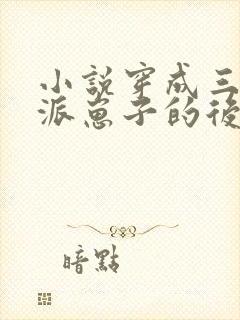 小説穿成三
派崽子的後
暗點